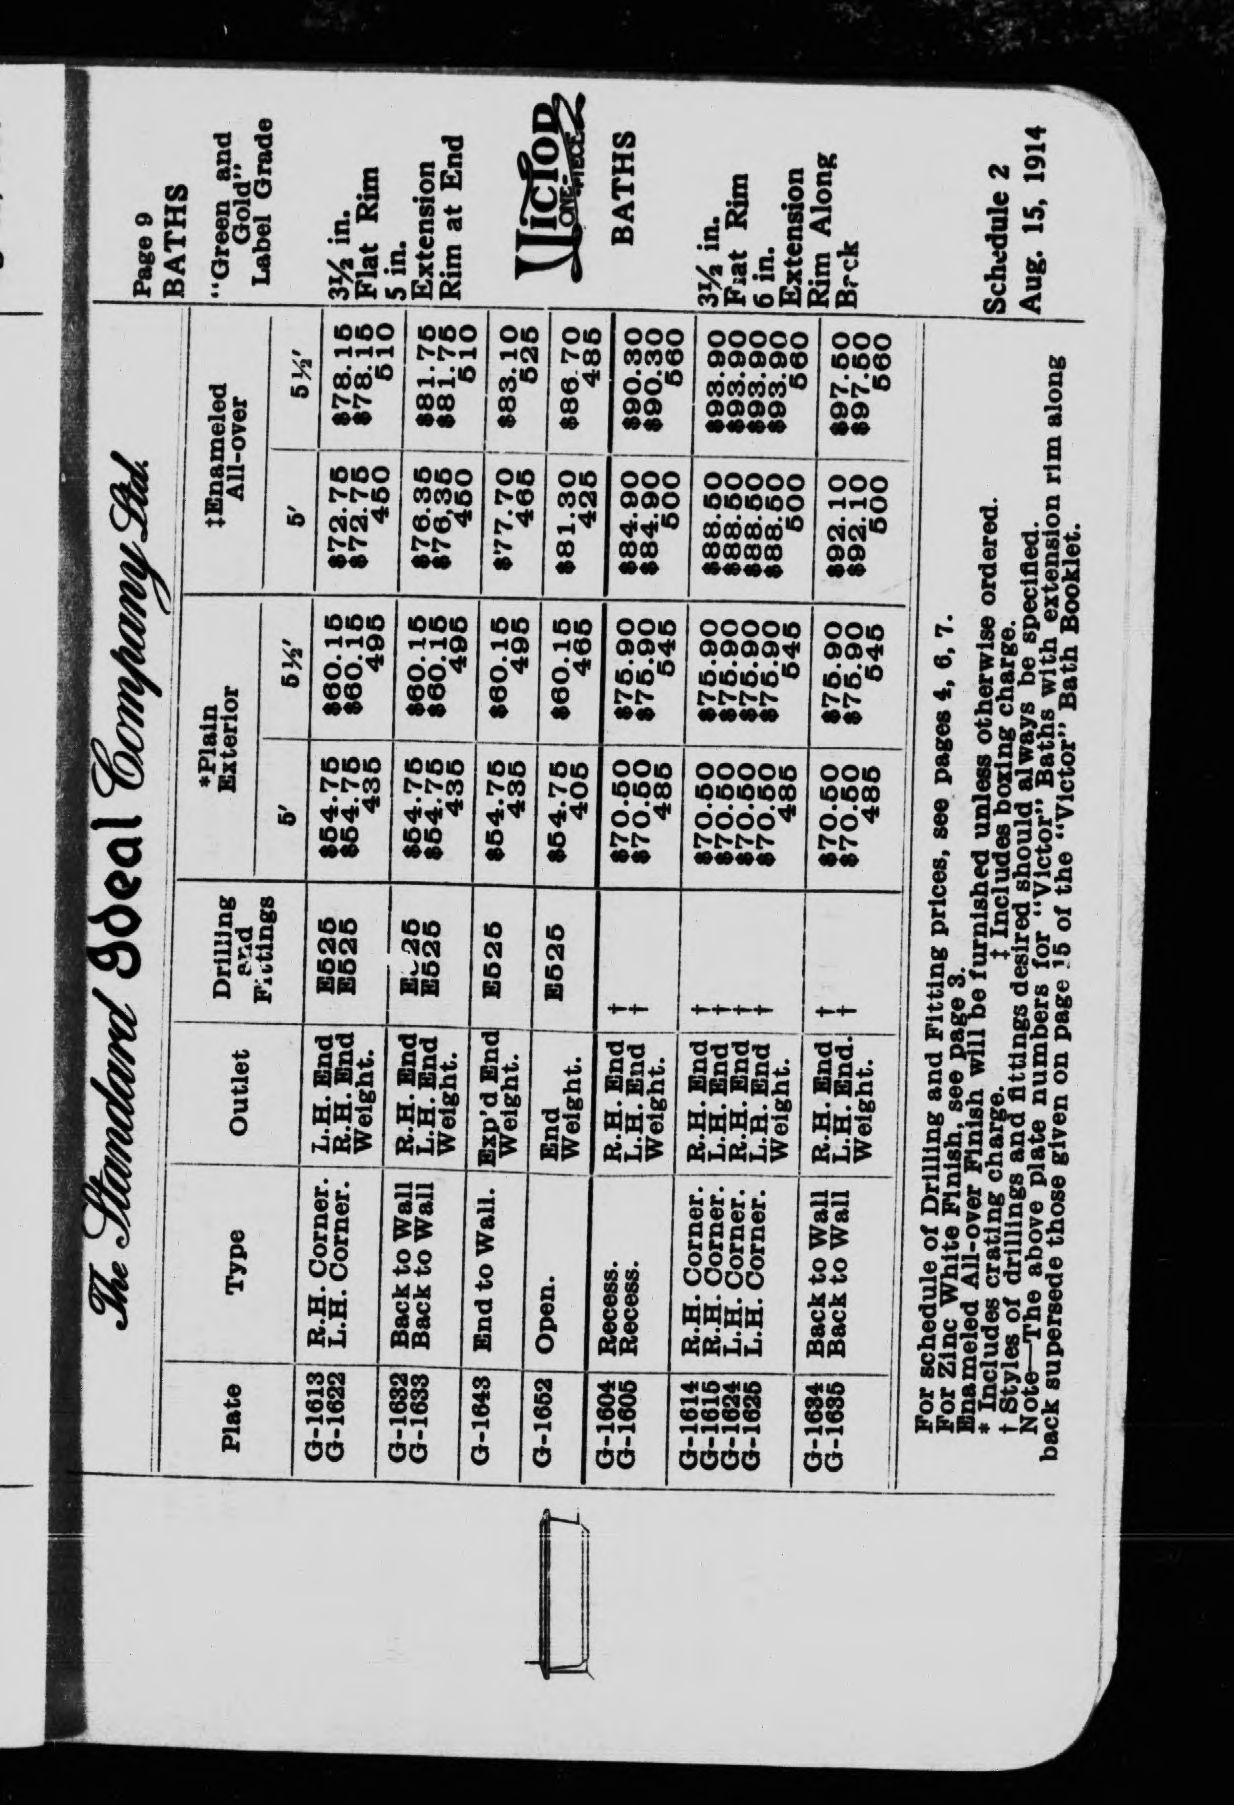 The Standard Ideal Company Ltd.
Page 9
BATHS
"Green and
Gold"
Label Grade
Plate Type Outlet Drilling and Fittings *Plain Exterior ‡Enameled All-over
5' 5½' 5' 5½'
G-1613 R.H. Corner. L.H. End E525 $54.75 $60.15 $72.75 $78.15
G-1622 L.H. Corner. R.H. End E525 $54.75 $60.15 $72.75 $78.15
Weight. 435 495 450 510
G-1632 Back to Wall R.H. End E525 $54.75 $60.15 $76.35 $81.75
G-1633 Back to Wall L.H. End E525 $54.75 $60.15 $76.35 $81.75
Weight. 435 495 450 510
G-1643 End to Wall. Exp'd End E525 $54.75 $60.15 $77.70 $83.10
Weight. 435 495 465 525
G-1652 Open. End E525 $54.75 $60.15 $81.30 $86.70
Weight. 405 465 425 485
G-1604 Recess. R.H. End † $70.50 $75.90 $84.90 $90.30
G-1605 Recess. L.H. End † $70.50 $75.90 $84.90 $90.30
Weight. 485 545 500 560
G-1614 R.H. Corner. R.H. End † $70.50 $75.90 $88.50 $93.90
G-1615 R.H. Corner. L.H. End † $70.50 $75.90 $88.50 $93.90
G-1624 L.H. Corner. R.H. End † $70.50 $75.90 $88.50 $93.90
G-1625 L.H. Corner. L.H. End † $70.50 $75.90 $88.50 $93.90
Weight. 485 545 500 560
G-1634 Back to Wall R.H. End † $70.50 $75.90 $92.10 $97.50
G-1635 Back to Wall L.H. End. † $70.50 $75.90 $92.10 $97.50
Weight. 485 545 500 560
3½ in.
Flat Rim
5 in.
Extension
Rim at End
Victor
ONE-PIECE
BATHS
3½ in.
Flat Rim
6 in.
Extension
Rim Along
Back
For schedule of Drilling and Fitting prices, see pages 4, 6, 7.
For Zinc White Finish, see page 3.
Enameled All-over Finish will be furnished unless otherwise ordered.
* Includes crating charge. ‡ Includes boxing charge.
† Styles of drillings and fittings desired should always be specified.
Note—The above plate numbers for "Victor" Baths with extension rim along
back supersede those given on page 15 of the "Victor" Bath Booklet.
Schedule 2
Aug. 15, 1914